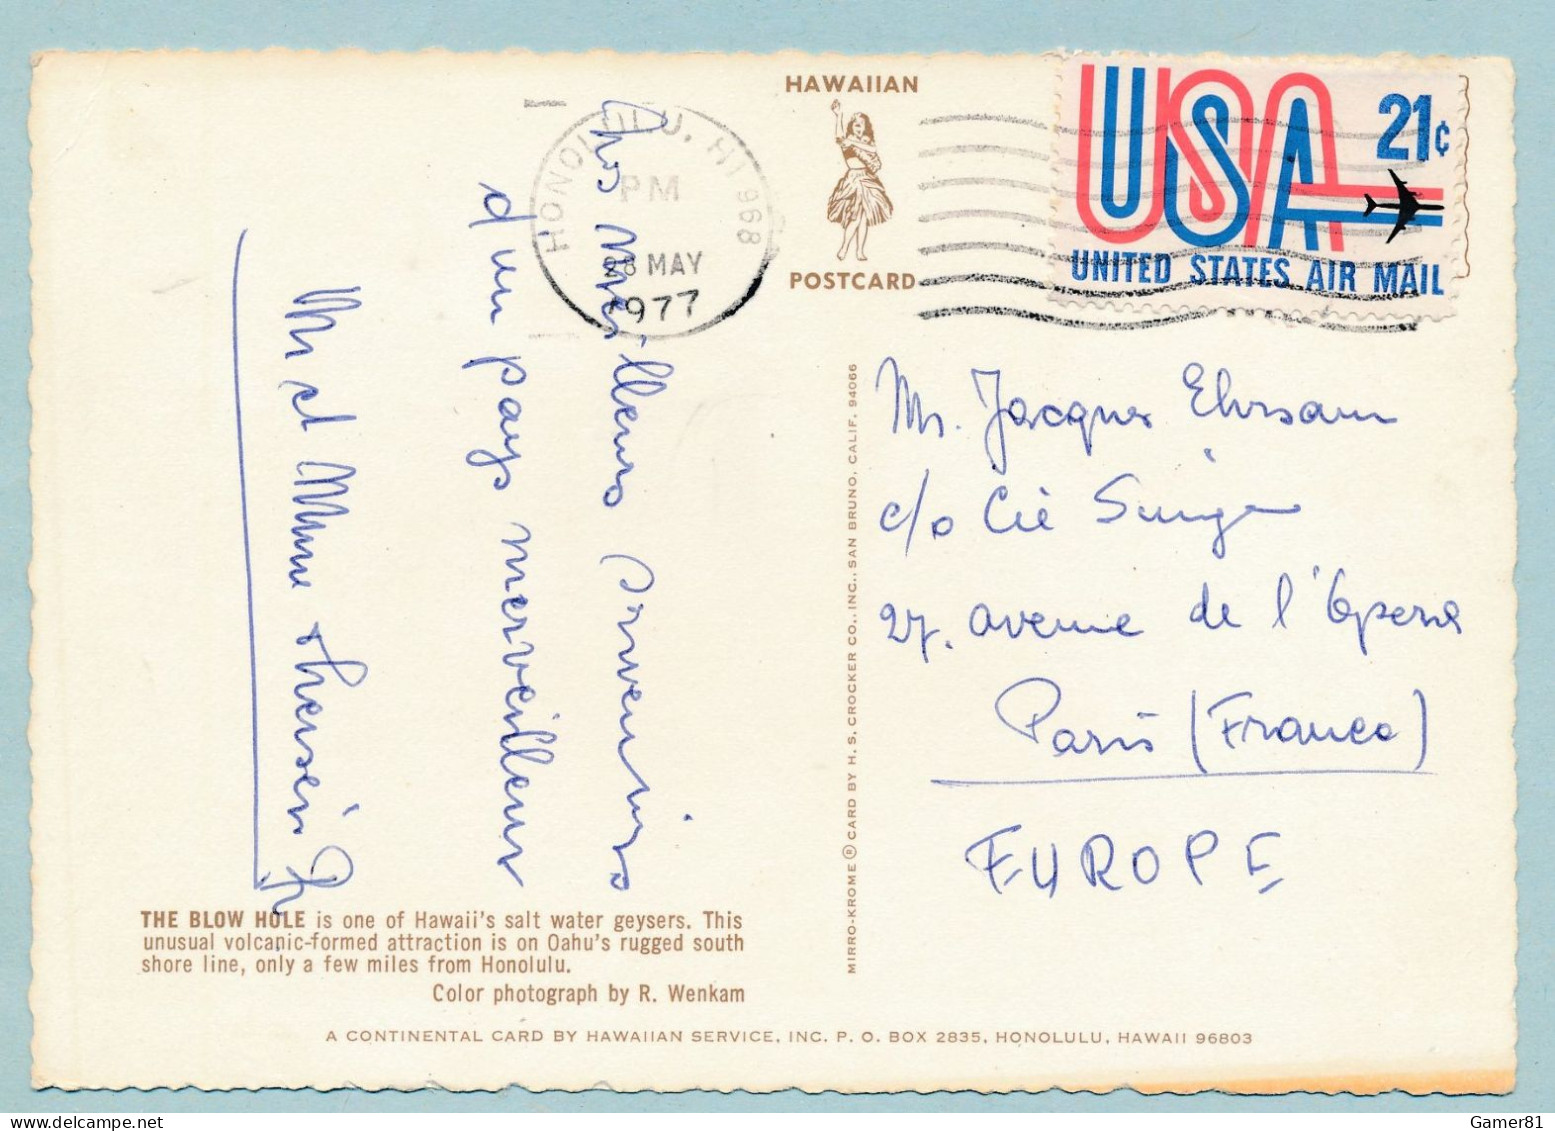 HAWAIIAN
POSTCARD
HONOLULU, HI 968
PM
28 MAY
1977
USA 21¢
UNITED STATES AIR MAIL
Nos meilleurs souvenirs
d'un pays merveilleux
M et Mme
Mr. Jacques Ehrsam
c/o Cie Singer
27. avenue de l'Opera
Paris (France)
EUROPE
MIRRO-KROME ® CARD BY H. S. CROCKER CO., INC., SAN BRUNO, CALIF. 94066
THE BLOW HOLE is one of Hawaii's salt water geysers. This
unusual volcanic-formed attraction is on Oahu's rugged south
shore line, only a few miles from Honolulu.
Color photograph by R. Wenkam
A CONTINENTAL CARD BY HAWAIIAN SERVICE, INC. P. O. BOX 2835, HONOLULU, HAWAII 96803
Gamer81